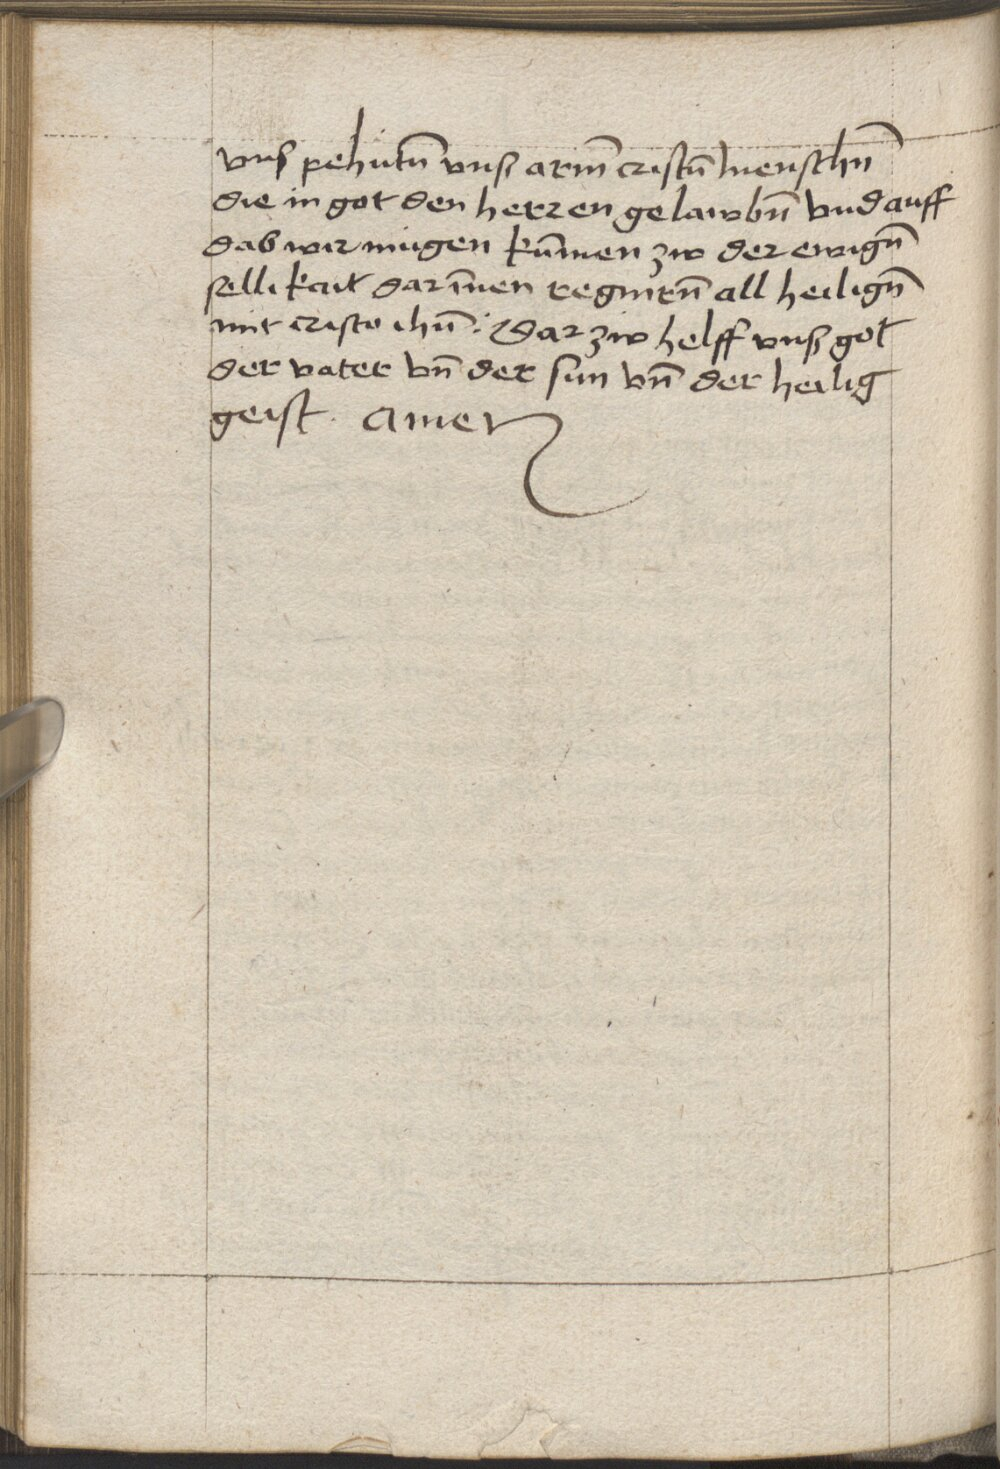 vnß pehútn̄ vnß arm̄ cristn̄ menschn̄
die in got den herren gelawbn̄ vnd auff
das wir mügen kūmen zw der ewign̄
sellikait dar īnen regnirn̄ all heilign̄
mit cristo ihū. Dar zw helff vnß got
der vater vn̄ der sun vn̄ der heilig
geist. amen